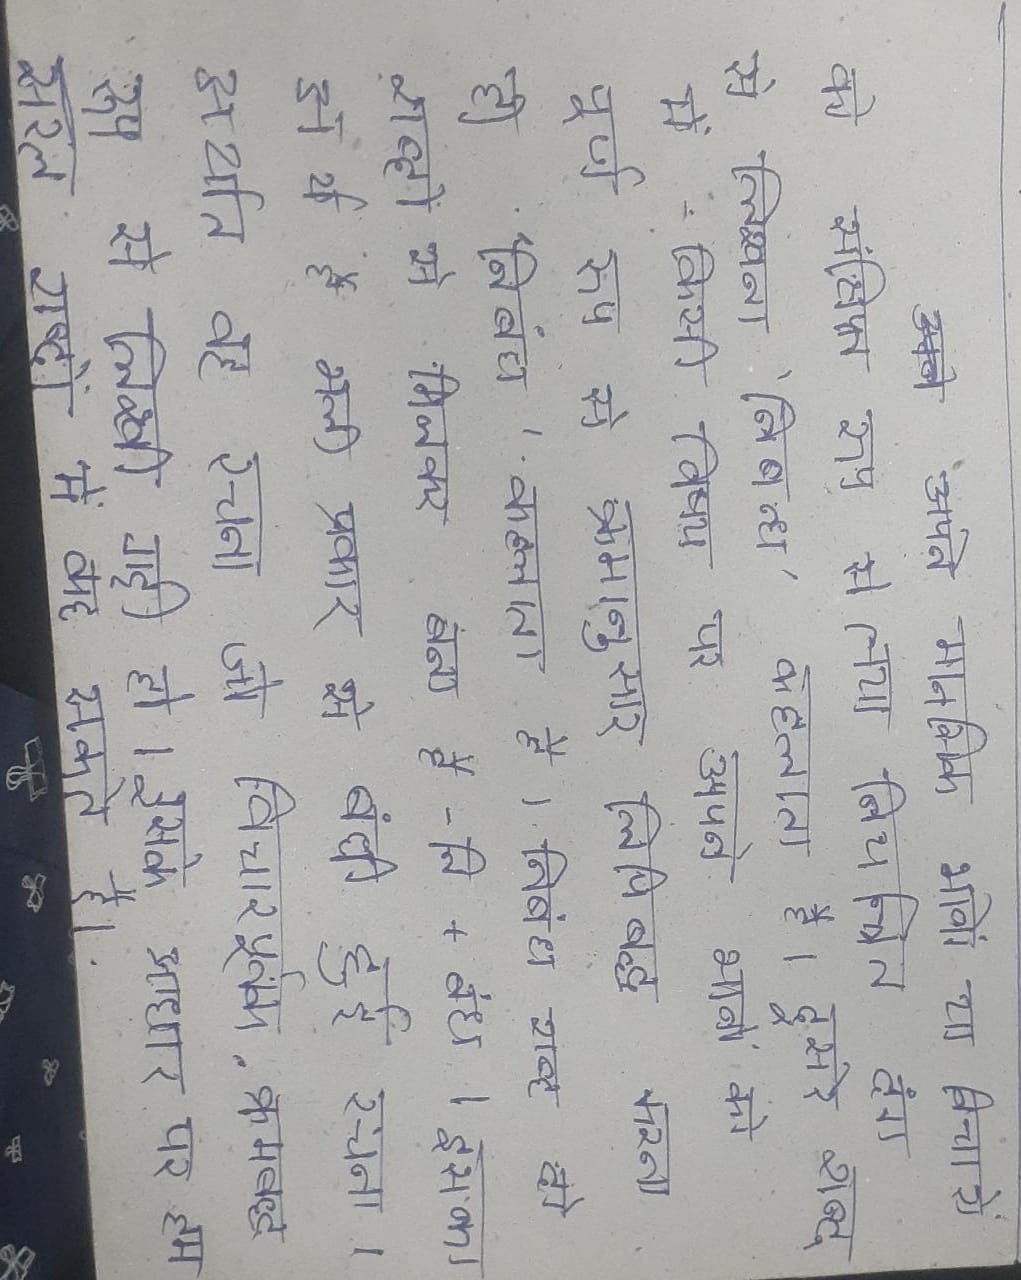 अपने मानसिक भावों या विचारों
को संक्षिप्त रुप से तथा नियन्त्रित ढंग
से लिखना 'निबन्ध' कहलाता है। दूसरे शब्द
में - किसी विषय पर अपने भावों को
पूर्ण रुप से क्रमानुसार लिपिबद्ध करना
ही 'निबंध' कहलाता है। निबंध शब्द दो
शब्दों से मिलकर बना है - नि + बंध । इसका
अर्थ है भली प्रकार से बंधी हुई रचना ।
अर्थात वह रचना जो विचारपूर्वक, क्रमबद्ध
रूप से लिखी गई हो । इसके आधार पर हम
सरल शब्दों में कह सकते है।